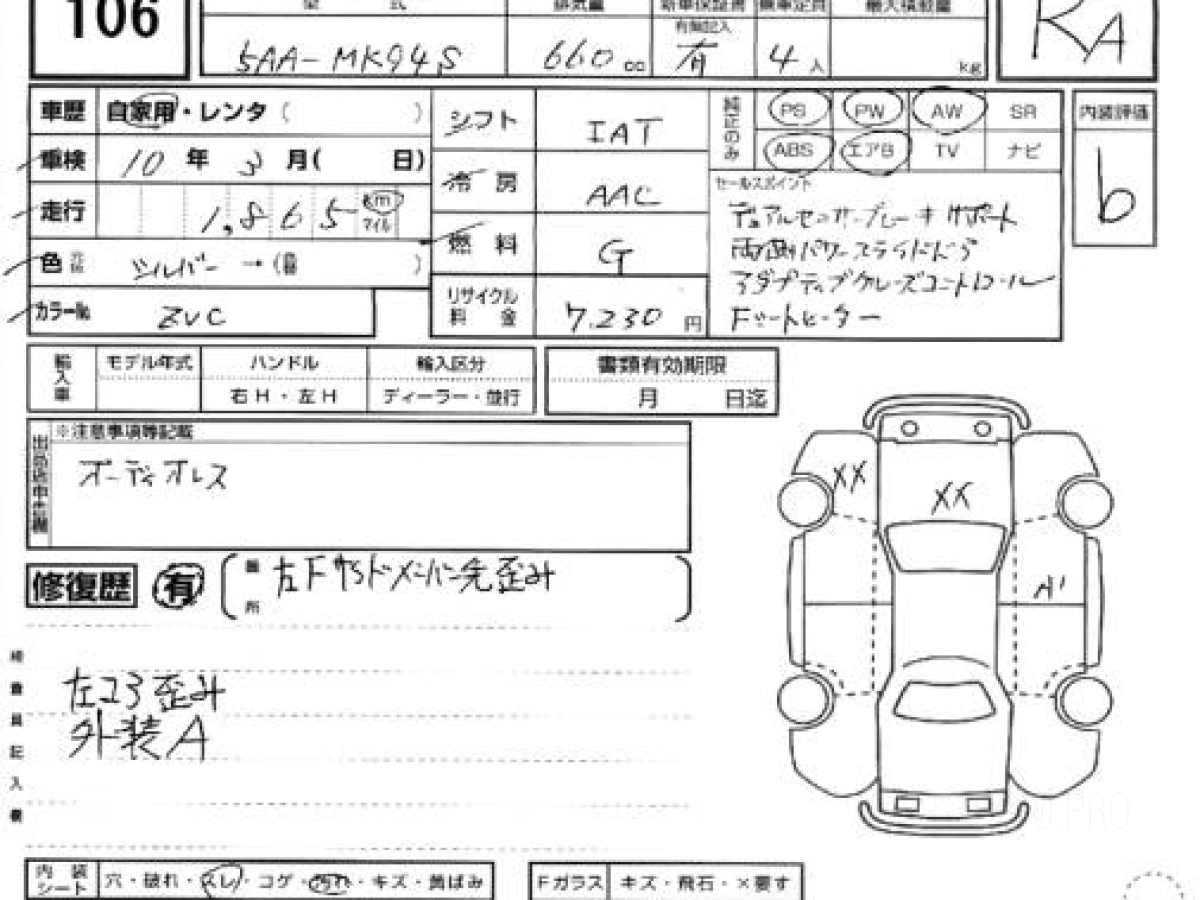 106
型 式 排気量 新車保証書 乗車定員 最大積載量 RA
有無記入
5AA-MK94S 660 cc 有 4 人 kg
車歴 自家用・レンタ( ) シフト IAT 純正のみ PS PW AW SR 内装評価
ABS エアB TV ナビ
車検 10 年 3 月( 日) 冷房 AAC b
セールスポイント
走行 1,865 km マイル デュアルセンサーブレーキサポート
燃料 G 両側パワースライドドア
色 シルバー →( ) アダプティブクルーズコントロール
カラーNo. ZVC リサイクル料金 7,230 円 Fシートヒーター
輸入車 モデル年式 ハンドル 輸入区分 書類有効期限
右H・左H ディーラー・並行 月 日迄
※注意事項等記載
オーディオレス
XX XX
修復歴 有 箇所 左Fサイドメンバー先歪み
A1
左コア歪み
外装A
内装シート 穴・破れ・スレ・コゲ・汚れ・キズ・黄ばみ Fガラス キズ・飛石・×要す